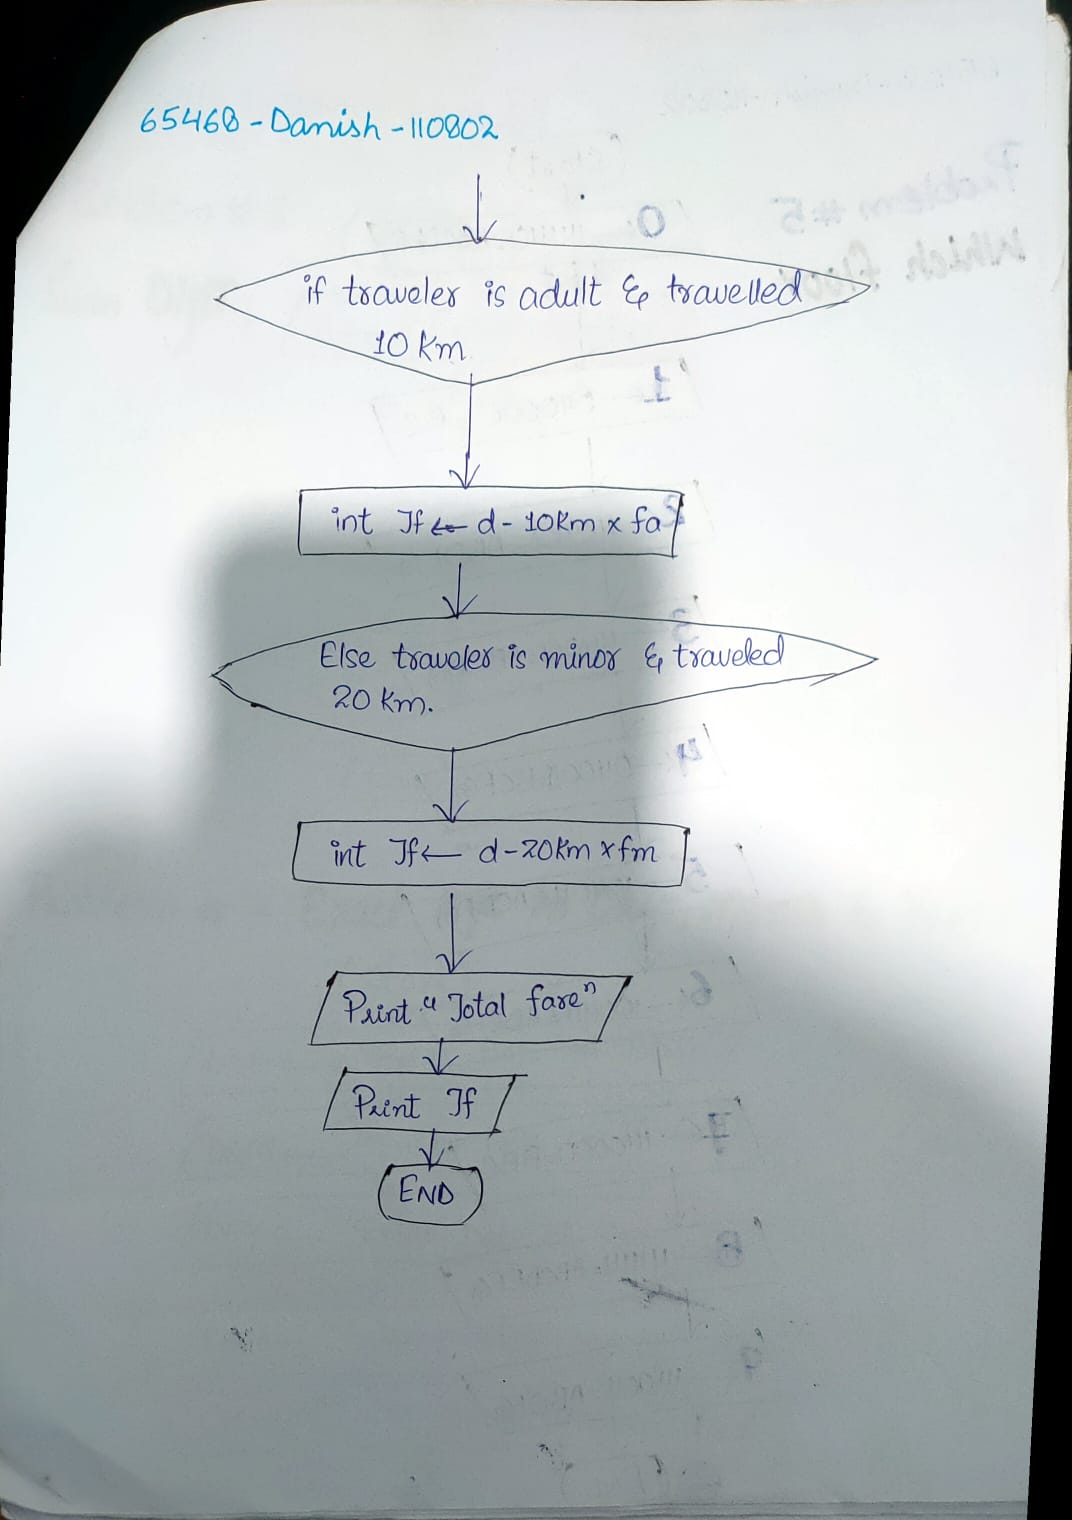 65468-Danish-110802
if traveler is adult & travelled
10 Km
int Tf ← d- 10Km x fa
Else traveler is minor & traveled
20 Km.
int Tf ← d-20Km x fm
Print "Total fare"
Print Tf
END